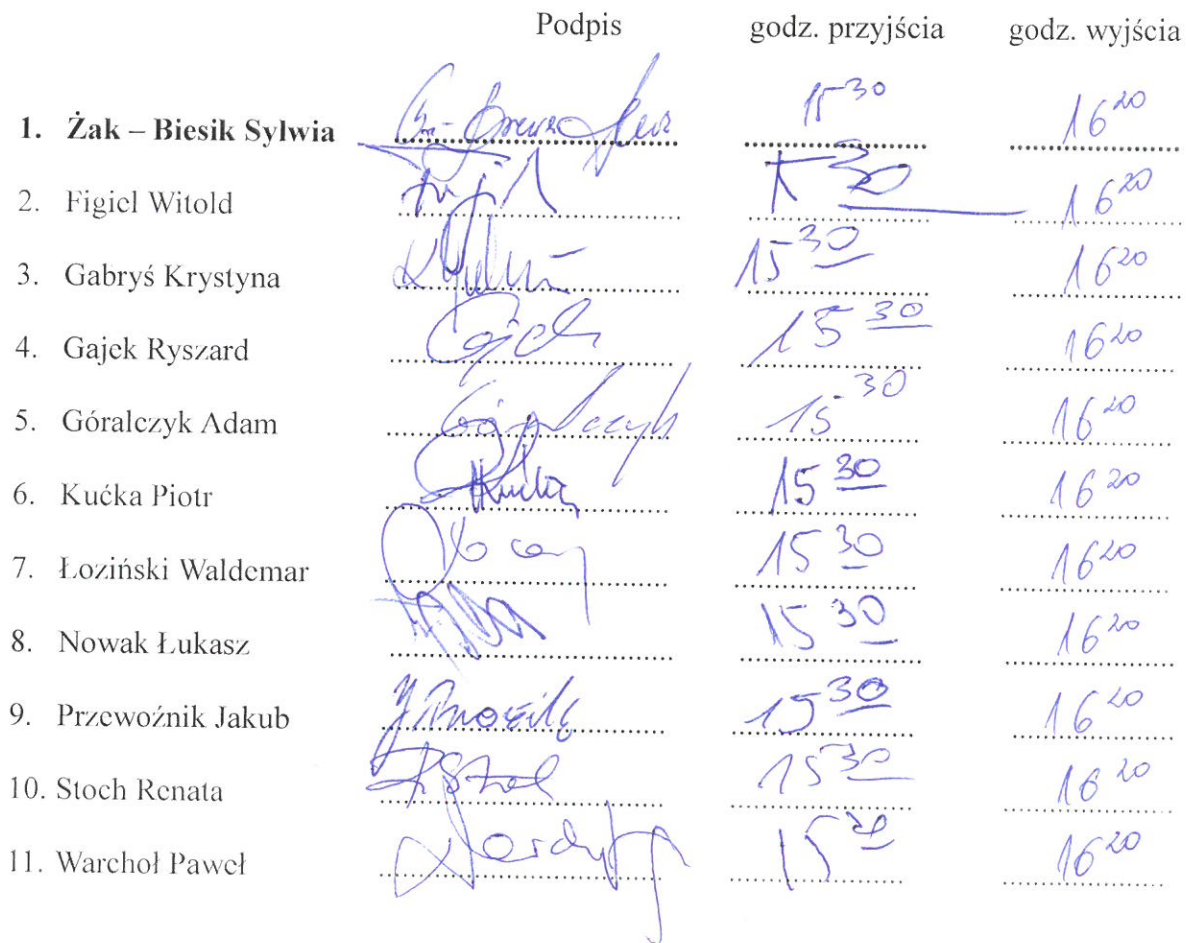 Podpis godz. przyjścia godz. wyjścia
1. Żak – Biesik Sylwia 15 30 16 20
2. Figiel Witold 15 30 16 20
3. Gabryś Krystyna 15 30 16 20
4. Gajek Ryszard Gajek 15 30 16 20
5. Góralczyk Adam Góralczyk 15 30 16 20
6. Kućka Piotr 15 30 16 20
7. Łoziński Waldemar 15 30 16 20
8. Nowak Łukasz 15 30 16 20
9. Przewoźnik Jakub 15 30 16 20
10. Stoch Renata 15 30 16 20
11. Warchoł Paweł 15 16 20